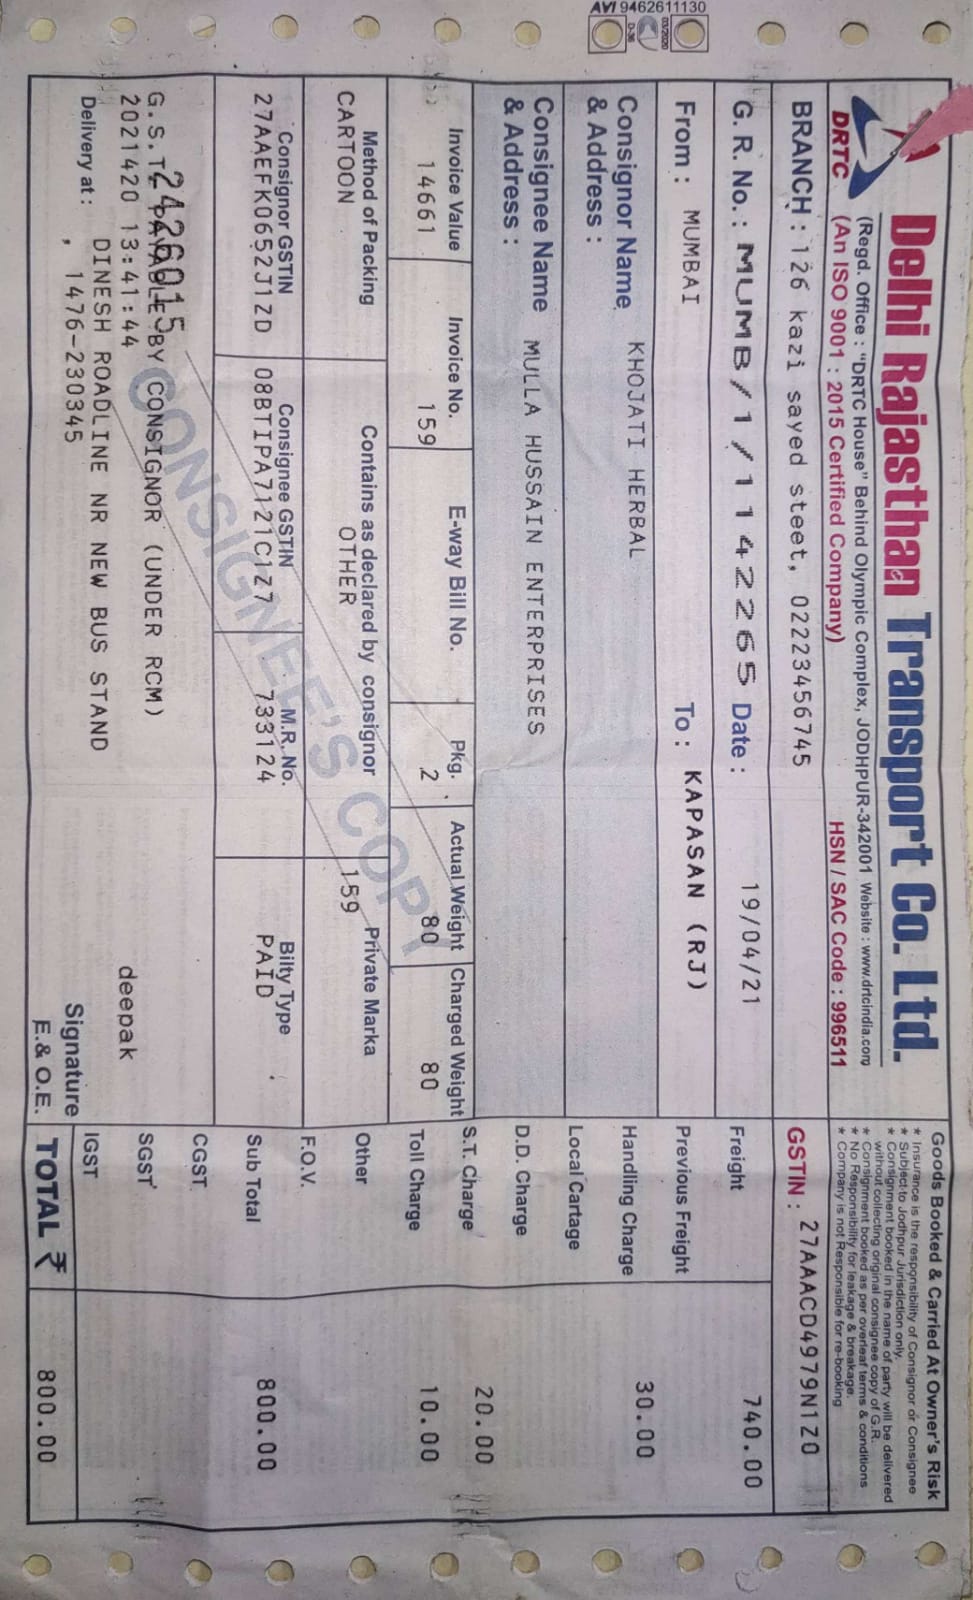 AVI 9462611130
03/2020
D-36
DRTC
Delhi Rajasthan Transport Co. Ltd.
(Regd. Office : "DRTC House" Behind Olympic Complex, JODHPUR-342001 Website : www.drtcindia.com
(An ISO 9001 : 2015 Certified Company)
HSN / SAC Code : 996511
Goods Booked & Carried At Owner's Risk
* Insurance is the responsibility of Consignor or Consignee
* Subject to Jodhpur Jurisdiction only.
* Consignment booked in the name of party will be delivered
without collecting original consignee copy of G.R.
* Consignment booked as per overleaf terms & conditions
* No Responsibility for leakage & breakage.
* Company is not Responsible for re-booking
BRANCH : 126 kazi sayed steet, 02223456745
GSTIN : 27AAACD4979N1Z0
G. R. No. : MUMB/1/1142265 Date : 19/04/21
From : MUMBAI To : KAPASAN (RJ)
Consignor Name KHOJATI HERBAL
& Address :
Consignee Name MULLA HUSSAIN ENTERPRISES
& Address :
Invoice Value Invoice No. E-way Bill No. Pkg. Actual Weight Charged Weight
14661 159 2 80 80
Method of Packing Contains as declared by consignor Private Marka
CARTOON OTHER 159
Consignor GSTIN Consignee GSTIN M.R. No. Bilty Type
27AAEFK0652J1ZD 08BTIPA7121C1Z7 733124 PAID
2426015
G.S.T PAYABLE BY CONSIGNOR (UNDER RCM)
2021420 13:41:44
deepak
Delivery at : DINESH ROADLINE NR NEW BUS STAND
, 1476-230345
Signature
E.& O.E.
CONSIGNEE'S COPY
Freight 740.00
Previous Freight
Handling Charge 30.00
Local Cartage
D.D. Charge
S.T. Charge 20.00
Toll Charge 10.00
Other
F.O.V.
Sub Total 800.00
CGST
SGST
IGST
TOTAL ₹ 800.00